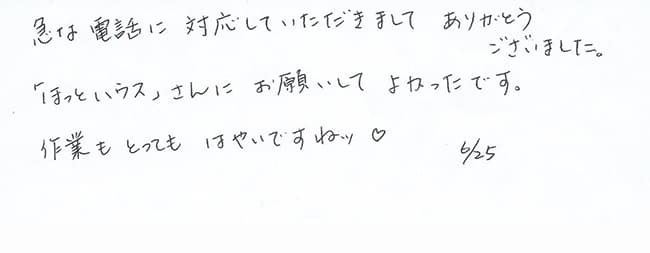 急な電話に 対応していただきまして ありがとう
ございました。
「ほっとハウス」さんに お願いして よかったです。
作業も とっても はやいですねッ♡
6/25